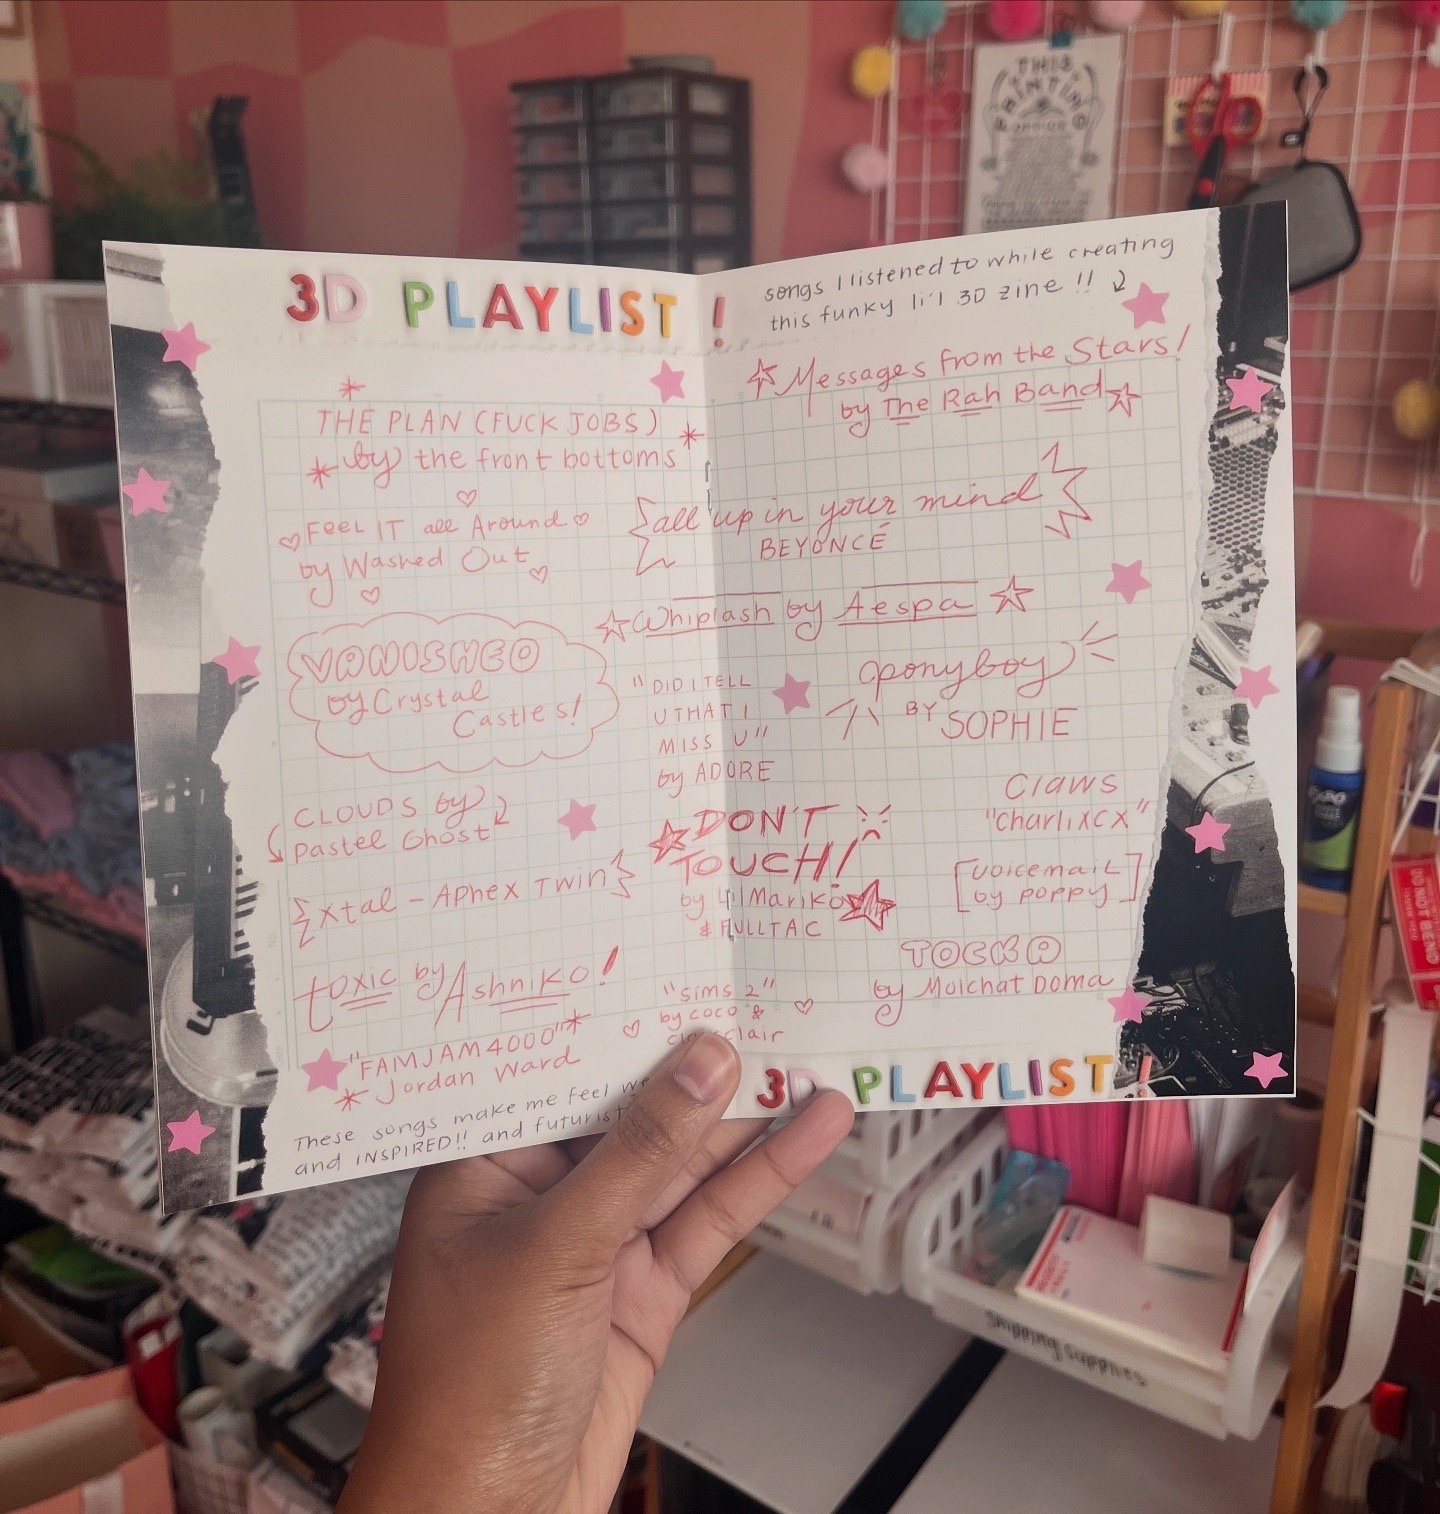 3D PLAYLIST !
THE PLAN (FUCK JOBS)
by the front bottoms
FEEL IT all Around
by Washed Out
VANISHED
by Crystal
Castles!
CLOUDS by
Pastel Ghost
Xtal - APHEX TWIN
toxic by Ashniko!
"FAMJAM4000"
Jordan Ward
These songs make me feel
and INSPIRED!! and
songs I listened to while creating
this funky li'l 3D zine !!
Messages from the Stars!
by The Rah Band
all up in your mind
BEYONCÉ
Whiplash by Aespa
ponyboy
BY SOPHIE
"DID I TELL
U THAT I
MISS U"
by ADORE
Claws
"CharliXCX"
DON'T
TOUCH!
by Lil Mariko
& FULLTAC
[voicemail
by poppy]
TOCKA
by Molchat Doma
"SIMS 2"
by coco &
clair
3D PLAYLIST !
THIS
PRINTING
shipping supplies